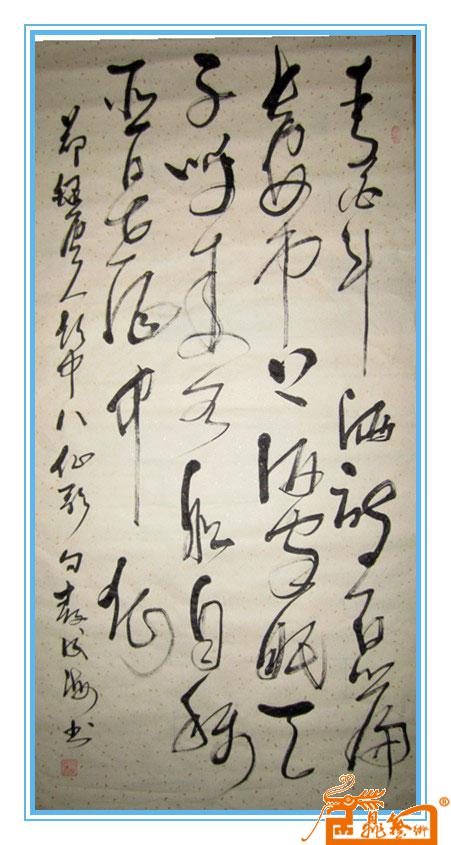 李白斗酒诗百篇
长安市上酒家眠天
子呼来不上船自称
臣是酒中仙
节录唐人饮中八仙歌句 海书